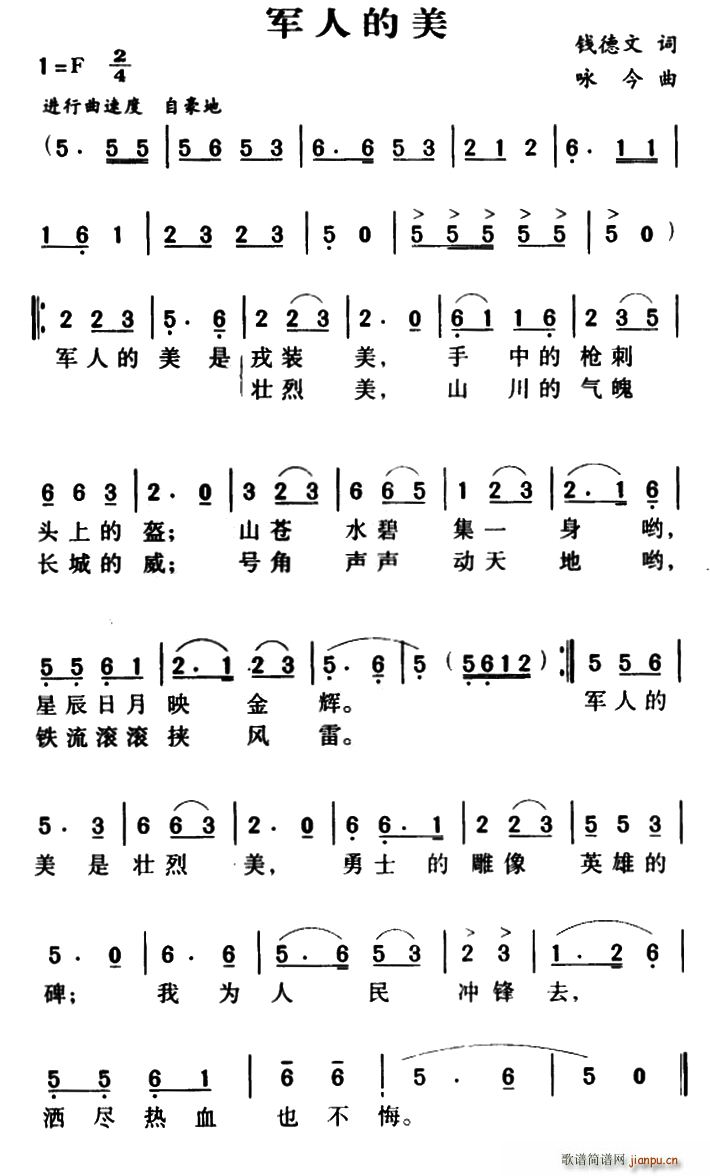 军人的美
1=F 2/4
钱德文 词
咏 今 曲
进行曲速度 自豪地
(5. 55 | 56 53 | 6. 6 53 | 21 2 | 6. 11 |
16 1 | 23 23 | 5 0 | 5 55 55 | 5 0 )
‖: 2 23 | 5. 6 | 2 23 | 2. 0 | 61 16 | 2 35 |
军人的 美 是 戎装 美, 手 中的 枪刺
壮烈 美, 山 川的 气魄
6 6 3 | 2. 0 | 3 23 | 6 65 | 1 23 | 2. 1 6 |
头上的 盔; 山苍 水碧 集一 身 哟,
长城的 威; 号角 声声 动天 地 哟,
55 61 | 2. 1 23 | 5. 6 | 5 (5612) :‖ 5 56 |
星辰日月 映 金 辉。 军人的
铁流滚滚 挟 风 雷。
5. 3 | 6 63 | 2. 0 | 6 6. 1 | 2 23 | 5 5 3 |
美 是 壮烈 美, 勇士 的 雕像 英雄的
5. 0 | 6. 6 | 5. 6 53 | 2 3 | 1. 2 6 |
碑; 我 为 人 民 冲锋 去,
55 61 | 6 6 | 5. 6 | 5 0 ‖
洒尽热血 也不 悔。
歌谱简谱网
jianpu.cn